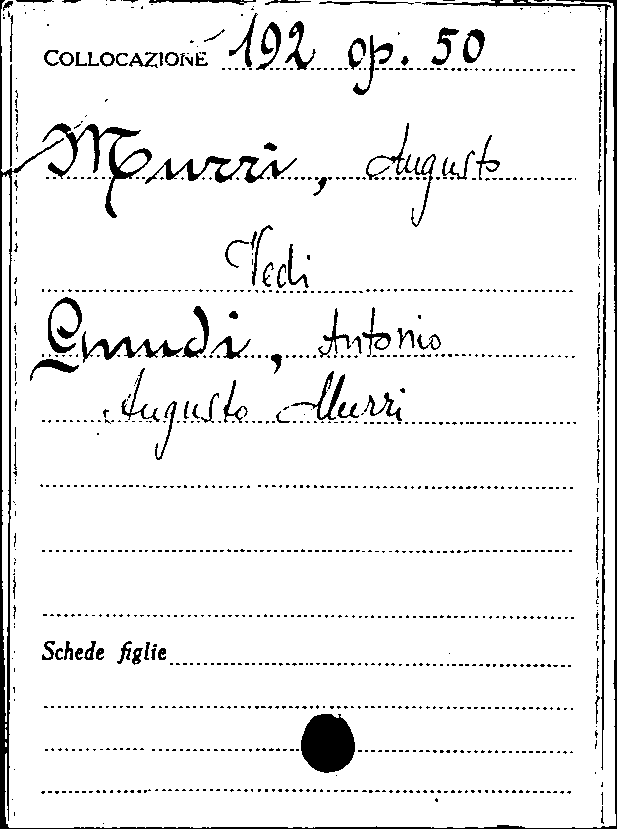 COLLOCAZIONE 192 op. 50
Murri, Augusto
Vedi
Gnudi, Antonio
Augusto Murri
Schede figlie